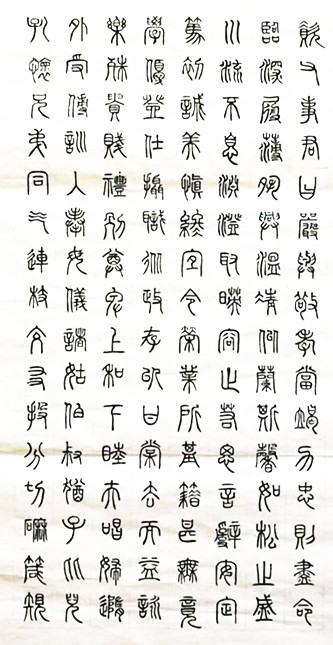 資父事君曰嚴與敬孝當竭力忠則盡命
臨深履薄夙興溫凊似蘭斯馨如松之盛
川流不息淵澄取映容止若思言辭安定
篤初誠美慎終宜令榮業所基籍甚無竟
學優登仕攝職從政存以甘棠去而益詠
樂殊貴賤禮別尊卑上和下睦夫唱婦隨
外受傅訓入奉母儀諸姑伯叔猶子比兒
孔懷兄弟同气連枝交友投分切磨箴規